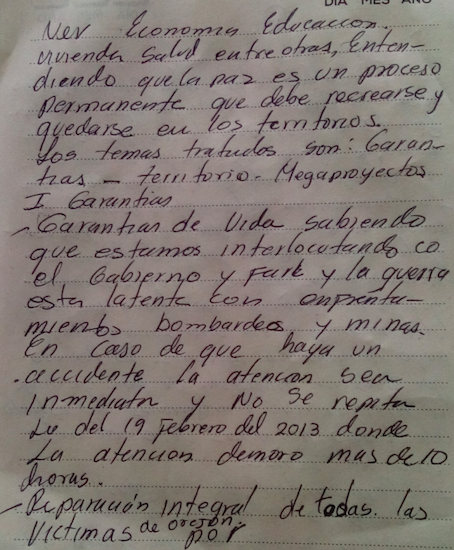 DIA MES AÑO
Ver Economia Educacion.
vivienda Salud entre otras, Enten-
diendo que la paz es un proceso
permanente que debe recrearse y
quedarse en los territorios.
Los temas tratados son: Garan-
tias - territorio - Megaproyectos
I Garantias
- Garantias de Vida sabiendo
que estamos interlocutando co
el Gobierno y Fark y la guerra
esta latente con enfrenta-
mientos bombardeos y minas.
En caso de que haya un
accidente la atencion sea
Inmediata y No Se repita
Lo del 19 Febrero del 2013 donde
La atencion demoro mas de 10
horas.
- Reparación integral de todas las
Victimas de orejon por